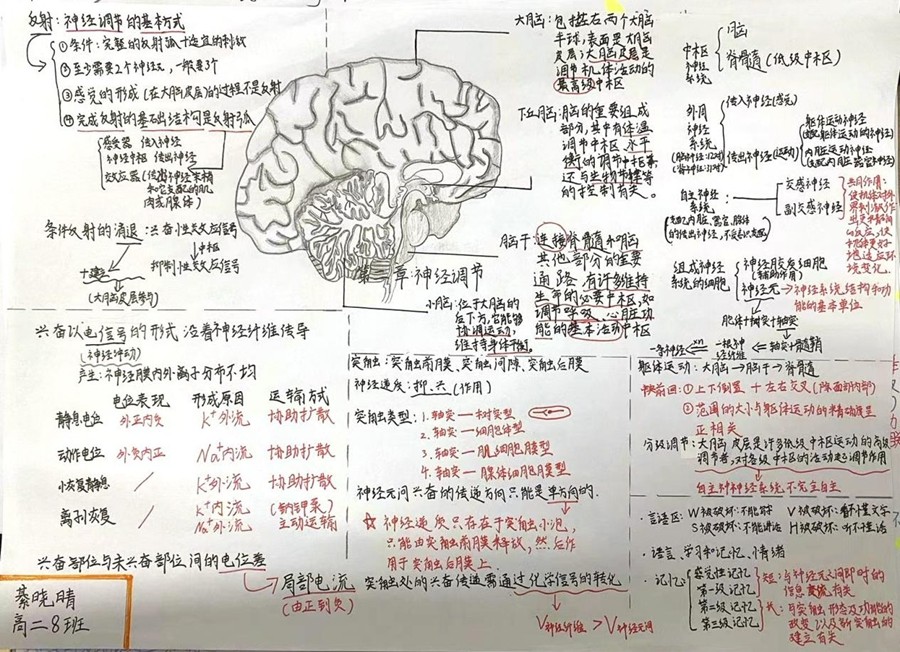 反射:神经调节的基本方式
①条件:完整的反射弧+适宜的刺激
②至少需要2个神经元,一般要3个
③感觉的形成(在大脑皮层)的过程不是反射
④完成反射的基础结构是反射弧
感受器 传入神经
神经中枢 传出神经
效应器(传出神经末梢
和它支配的肌
肉或腺体)
条件反射的消退:兴奋性效应信号
中枢
抑制性效应信号
(大脑皮层参与)
大脑:包括左右两个大脑
半球,表面是大脑
皮层;大脑皮层是
调节机体活动的
最高级中枢
下丘脑:脑的重要组成
部分,其中有体温
调节中枢、水平
衡的调节中枢等,
还与生物节律等
的控制有关。
脑干:连接脊髓和脑
其他部分的重要
通路,有许多维持
生命的必要中枢,如
调节呼吸、心脏功
能的基本活动中枢
小脑:位于大脑的
后下方,它能够
协调运动,
维持身体平衡。
第二章 神经调节
中枢
神经
系统
脑
脊髓(低级中枢)
外周
神经
系统
(脑神经:12对)
(脊神经:31对)
传入神经(感觉)
传出神经(运动)
躯体运动神经
(支配躯体运动的神经)
内脏运动神经
(支配内脏器官神经)
自主神经
系统
交感神经
副交感神经
共同作用:
使机体对外
界刺激作
出更精确
的反应,使
机体更好
地适应环
境变化。
组成神经
系统的细胞
神经胶质细胞
(辅助作用)
神经元→神经系统结构和功
能的基本单位
胞体+树突+轴突
轴突+髓鞘
兴奋以电信号的形式 沿着神经纤维传导
(神经冲动)
产生:神经膜内外离子分布不均
电位表现 形成原因 运输方式
静息电位 外正内负 K⁺外流 协助扩散
动作电位 外负内正 Na⁺内流 协助扩散
恢复静息 / K⁺外流 协助扩散
离子恢复 / K⁺内流 (钠钾泵)
Na⁺外流 主动运输
兴奋部位与未兴奋部位间的电位差
局部电流
(由正到负)
突触:突触前膜、突触间隙、突触后膜
神经递质:抑、兴(作用)
突触类型:1.轴突—树突型
2.轴突—细胞体型
3.轴突—肌细胞膜型
4.轴突—腺体细胞膜型
神经元间兴奋的传递方向只能是单方向的.
☆神经递质只存在于突触小泡,
只能由突触前膜释放,然后作
用于突触后膜上.
突触处的兴奋传递需通过化学信号的转化
V神经纤维 > V神经元间
躯体运动:大脑→脑干→脊髓
中央前回:①上下倒置+左右交叉(除面部内部)
②范围的大小与躯体运动的精确度呈
正相关
分级调节:大脑皮层是许多低级中枢运动的高级
调节者,对各级中枢的活动起调节作用
自主神经系统不完全自主
·言语区:W被破坏:不能写 V被破坏:看不懂文字
S被破坏:不能讲话 H被破坏:听不懂话
·语言、学习和记忆、情绪
·记忆:
感觉性记忆
第一级记忆
第二级记忆
第三级记忆
短:与神经元之间即时的
信息交流有关
长:与突触形态及功能的
改变以及新突触的
建立有关
綦晓晴
高二8班